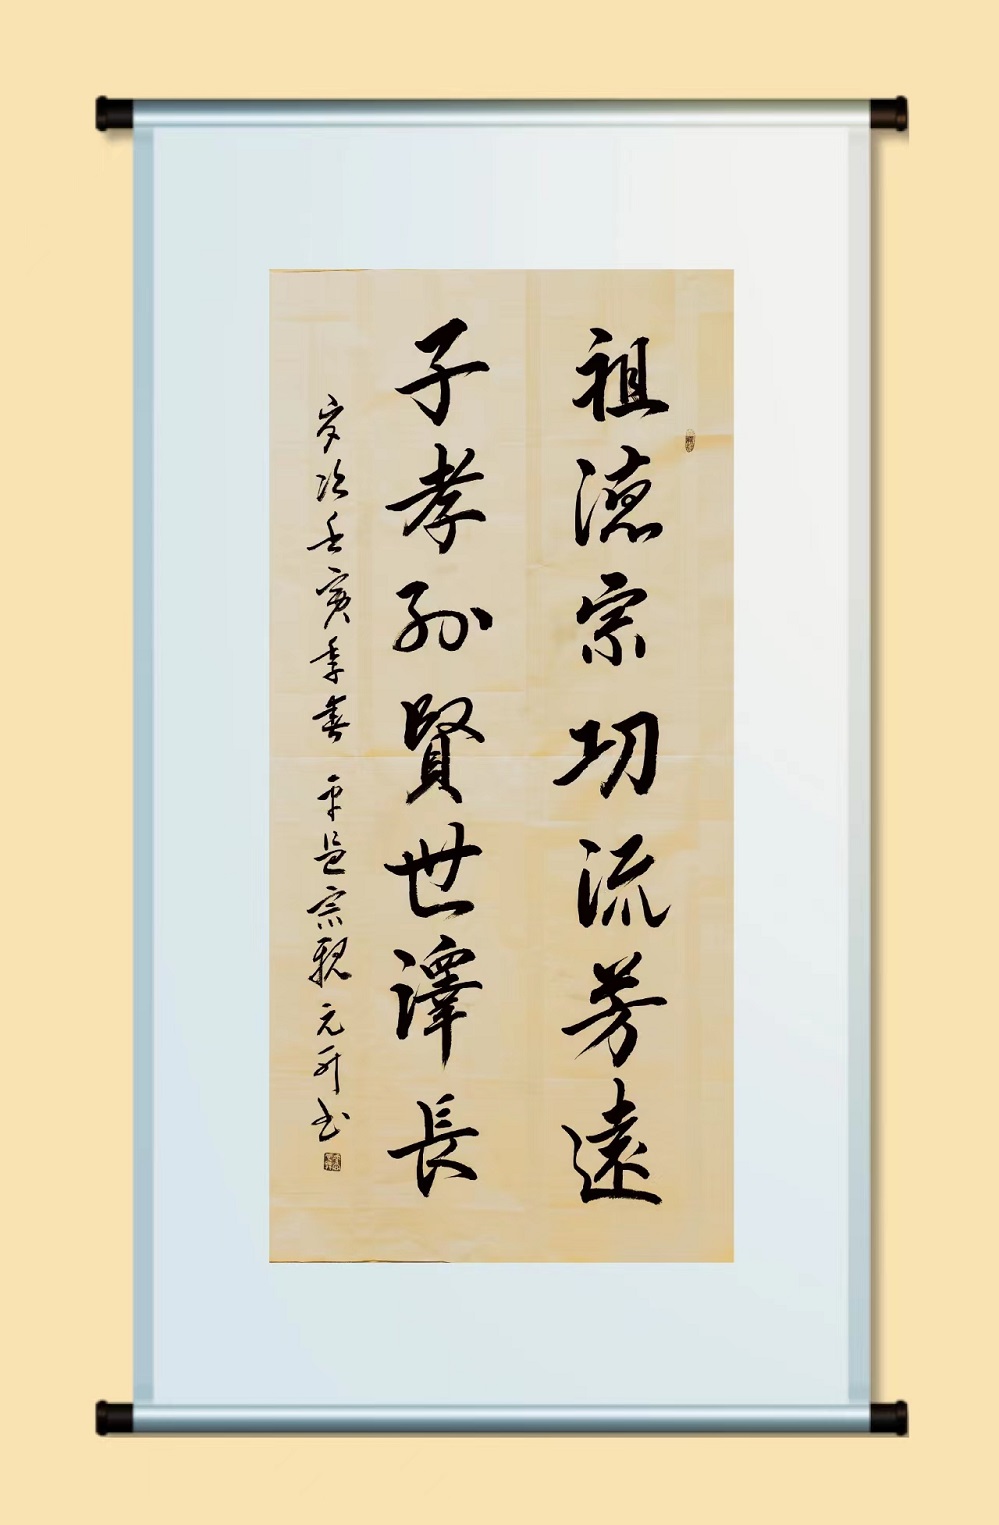 祖德宗功流芳遠
子孝孫賢世澤長
歲次壬寅季春 平邑宗親元升书